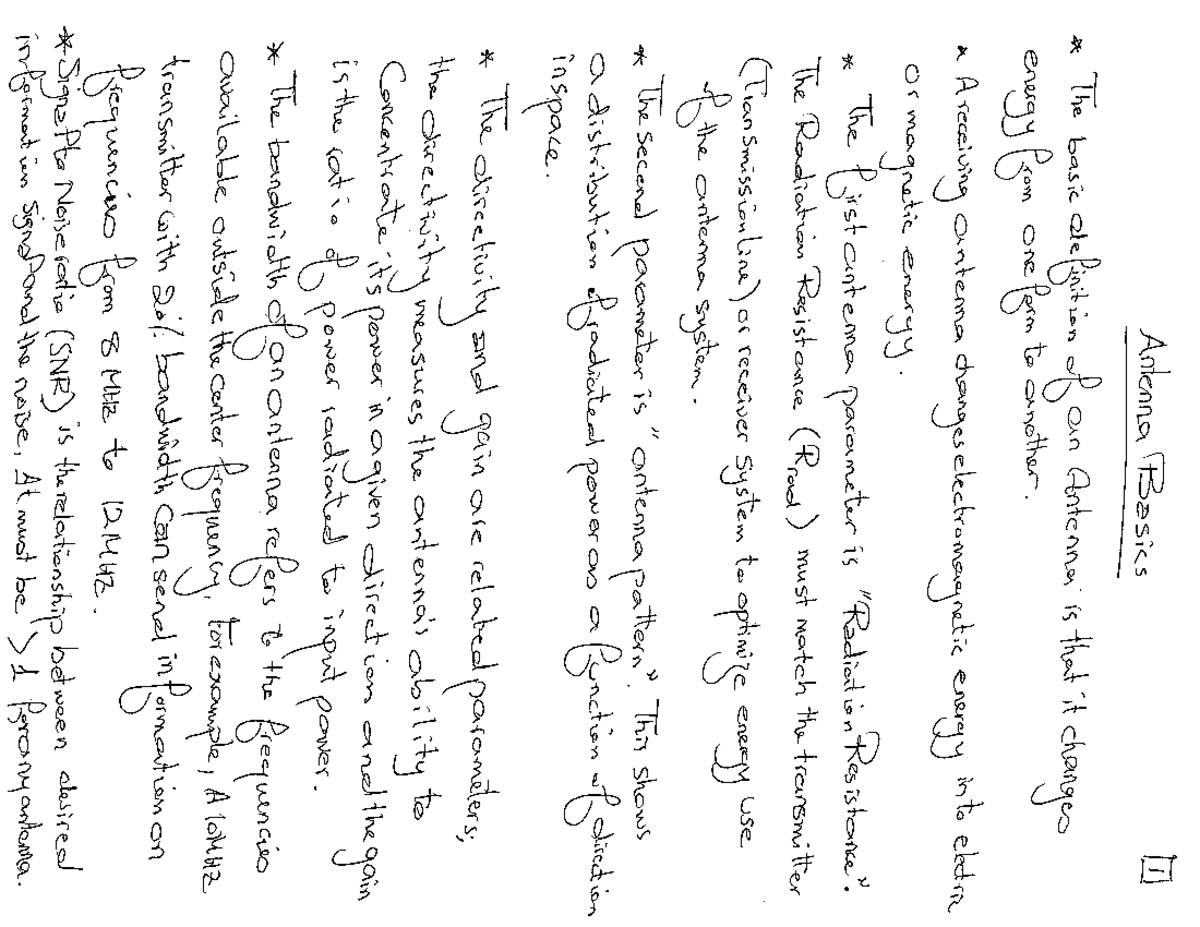 Antenna Basics
1
* The basic definition of an Antenna is that it changes
energy from one form to another.
* A receiving antenna changes electromagnetic energy into electric
or magnetic energy.
* The first antenna parameter is "Radiation Resistance".
The Radiation Resistance (Rrad) must match the transmitter
(Transmission line) or receiver system to optimize energy use
of the antenna system.
* The second parameter is "antenna pattern". This shows
a distribution of radiated power as a function of direction
in space.
* The directivity and gain are related parameters;
the directivity measures the antenna's ability to
Concentrate its power in a given direction and the gain
is the ratio of power radiated to input power.
* The bandwidth of an antenna refers to the frequencies
available outside the center frequency, for example, A 10MHz
transmitter with 20% bandwidth can send information on
frequencies from 8 MHz to 12 MHz.
* Signal to Noise ratio (SNR) is the relationship between desired
information signal and the noise, It must be > 1 for any antenna.